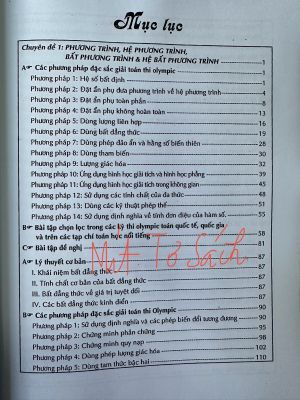 Mục lục
Chuyên đề 1: PHƯƠNG TRÌNH, HỆ PHƯƠNG TRÌNH,
BẤT PHƯƠNG TRÌNH & HỆ BẤT PHƯƠNG TRÌNH 1
A Các phương pháp đặc sắc giải toán thi olympic 1
Phương pháp 1: Hệ số bất định 1
Phương pháp 2: Đặt ẩn phụ đưa phương trình về hệ phương trình 4
Phương pháp 3: Đặt ẩn phụ toàn phần 8
Phương pháp 4: Đặt ẩn phụ không hoàn toàn 13
Phương pháp 5: Dùng lượng liên hợp 16
Phương pháp 6: Dùng bất đẳng thức 19
Phương pháp 7: Dùng phép đảo ẩn và hằng số biến thiên 28
Phương pháp 8: Dùng tham biến 30
Phương pháp 9: Lượng giác hóa 32
Phương pháp 10: Ứng dụng hình học giải tích và hình học phẳng 39
Phương pháp 11: Ứng dụng hình học giải tích trong không gian 45
Phương pháp 12: Sử dụng các tính chất của đa thức 48
Phương pháp 13: Dùng các kỹ thuật phép thế 51
Phương pháp 14: Sử dụng định nghĩa về tính đơn điệu của hàm số. 55
B Bài tập chọn lọc trong các kỳ thi olympic toán quốc tế, quốc gia
và trên các tạp chí toán học nổi tiếng 58
C Bài tập đề nghị 81
Mất Tờ Sách
A Lý thuyết cơ bản 87
I. Khái niệm bất đẳng thức 87
II. Tính chất cơ bản của bất đẳng thức 87
III. Bất đẳng thức về giá trị tuyệt đối 87
IV. Các bất đẳng thức kinh điển 87
B Các phương pháp đặc sắc giải toán thi Olympic 90
Phương pháp 1: Sử dụng định nghĩa và các phép biến đổi tương đương 90
Phương pháp 2: Chứng minh phản chứng 95
Phương pháp 3: Chứng minh quy nạp 98
Phương pháp 4: Dùng phép lượng giác hóa 102
Phương pháp 5: Dùng tam thức bậc hai 110